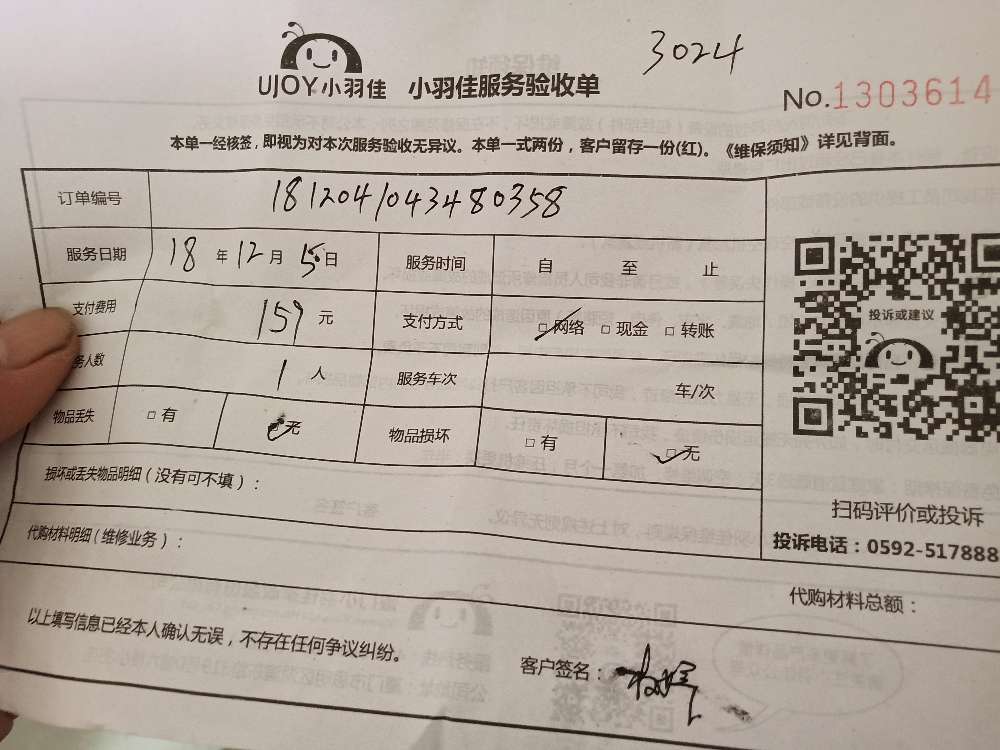 3024
UJOY小羽佳 小羽佳服务验收单
No.1303614
本单一经核签,即视为对本次服务验收无异议。本单一式两份,客户留存一份(红)。《维保须知》详见背面。
订单编号 181204104348 0358
服务日期 18 年 12 月 15 日 服务时间 自 至 止
支付费用 159 元 支付方式 □网络 □现金 □转账
务人数 1 人 服务车次 车/次
物品丢失 □有 无 物品损坏 □有 □无
投诉或建议
损坏或丢失物品明细(没有可不填):
扫码评价或投诉
代购材料明细(维修业务):
投诉电话:0592-517888
代购材料总额:
以上填写信息已经本人确认无误,不存在任何争议纠纷。
客户签名: